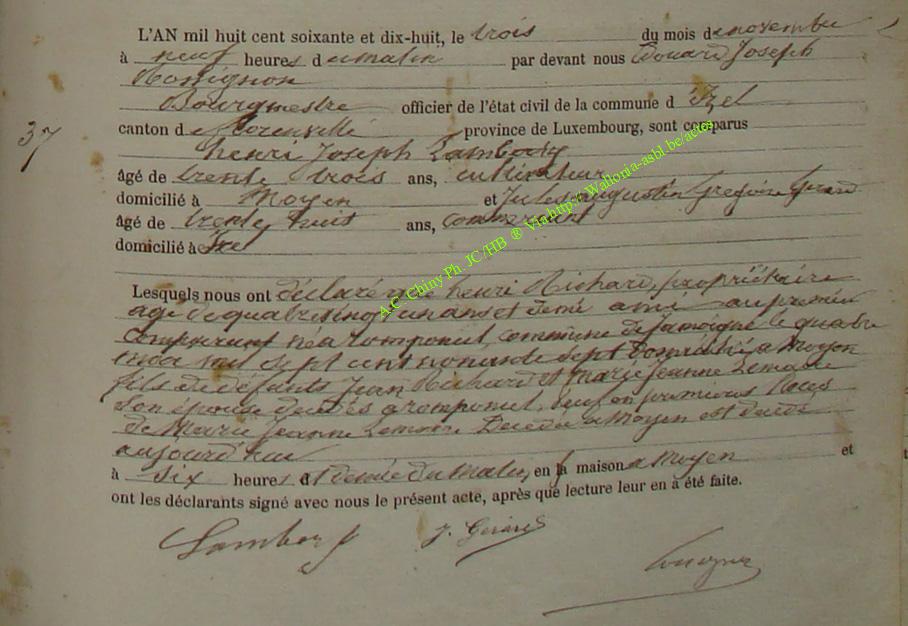 L'AN mil huit cent soixante et dix-huit, le trois du mois de novembre
à neuf heures du matin par devant nous Edouard Joseph
Rossignon
Bourgmestre officier de l'état civil de la commune d'Izel
37
canton de Florenville province de Luxembourg, sont comparus
henri Joseph Lambory
âgé de trente trois ans, cultivateur
domicilié à Moyen et Jules augustin Gregoire Gerard
âgé de trente huit ans, commercant
domicilié à Izel
A.C. Chiny Ph. JC /HB ® Via http://Wallonia-asbl.be/actes
Lesquels nous ont déclaré que henri Richard, propriétaire
agé de quatre vingt un ans et demi ami au premier
comparant né a romponcel, commune de jamoigne le quatre
mai mil sept cent nonante sept domicilié a Moyen
fils de defunts Jean Richard et Marie Jeanne Lemaire
Son épouse décédés a romponcel, veuf en premieres Noces
de Marie Jeanne décédée a Moyen est décédé
aujourd'hui
à six heures et demie du matin, en sa maison a Moyen et
ont les déclarants signé avec nous le présent acte, après que lecture leur en a été faite.
Lambory J. Gerard